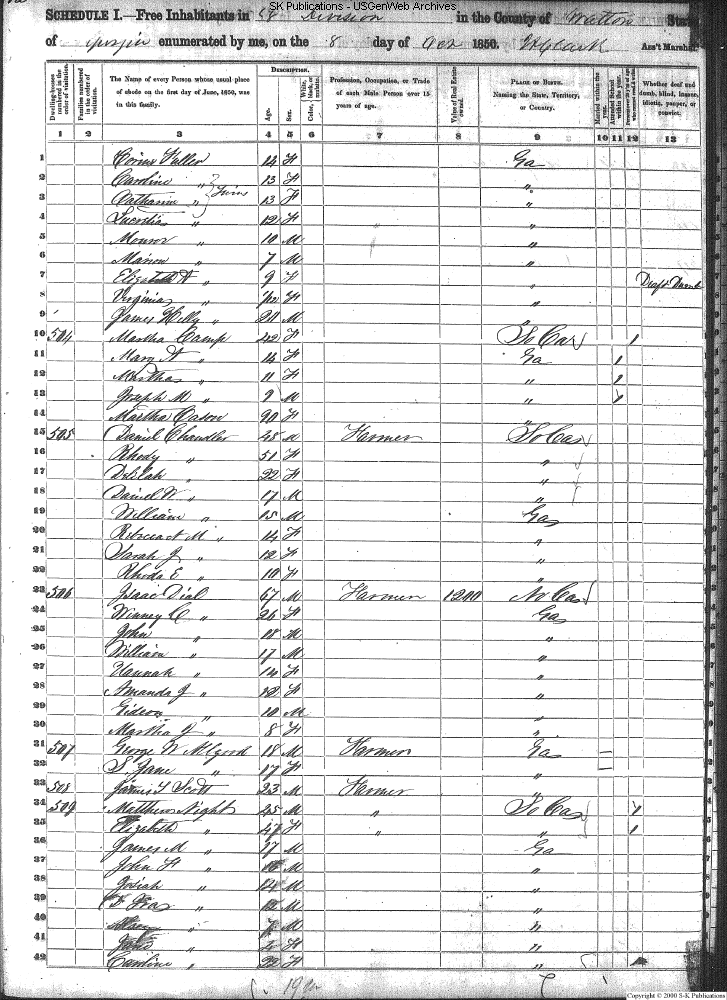 SK Publications - USGenWeb Archives
SCHEDULE I.—Free Inhabitants in 88 Division in the County of Walton State
of Georgia enumerated by me, on the 8 day of Oct 1850. Ass't Marshal.
Dwelling-houses numbered in the order of visitation.
Families numbered in the order of visitation.
The Name of every Person whose usual place of abode on the first day of June, 1850, was in this family.
DESCRIPTION.
Age.
Sex.
Color, White, black, or mulatto.
Profession, Occupation, or Trade of each Male Person over 15 years of age.
Value of Real Estate owned.
PLACE OF BIRTH. Naming the State, Territory, or Country.
Married within the year.
Attended School within the year.
Whether deaf and dumb, blind, insane, idiotic, pauper, or convict.
1 2 3 4 5 6 7 8 9 10 11 12 13
1 Fuller 14 F Ga
2 Caroline " 13 F "
3 Catharine " } Twins 13 F "
4 Lucretia " 12 F "
5 Monroe " 10 M "
6 Marion " 7 M "
7 Elizabeth A " 9 F " Deaf & Dumb
8 Virginia " F "
9 James " 20 M "
10 504 Martha Camp 42 F So Car 1
11 Mary A " 14 F Ga 1
12 Martha " 11 F " 1
13 Joseph M " 9 M " 1
14 Martha Cason 90 F "
15 505 Daniel Chandler 48 M Farmer So Car
16 Rhody " 51 F "
17 Delilah " 22 F "
18 Daniel W " 17 M "
19 William " 15 M Ga
20 M " 14 F "
21 Sarah J " 12 F "
22 Rhoda E " 10 F "
23 506 Isaac Dial 67 M Farmer 1200 No Car
24 Winney C " 26 F Ga
25 John " 18 M "
26 William " 17 M "
27 Hannah " 14 F "
28 Amanda J " 12 F "
29 Gideon " 10 M "
30 Martha J " 8 F "
31 507 George W Allgood 18 M Farmer Ga
32 S. Jane " 17 F "
33 508 James S Scott 23 M Farmer "
34 509 Matthew Night 45 M " So Car 1
35 Elizabeth " 47 F " " 1
36 James M " 17 M Ga
37 John F " 16 M "
38 Josiah " 14 M "
39 " 12 M "
40 " M "
41 " F "
42 Caroline " 22 F "
Copyright © 2000 S-K Publications